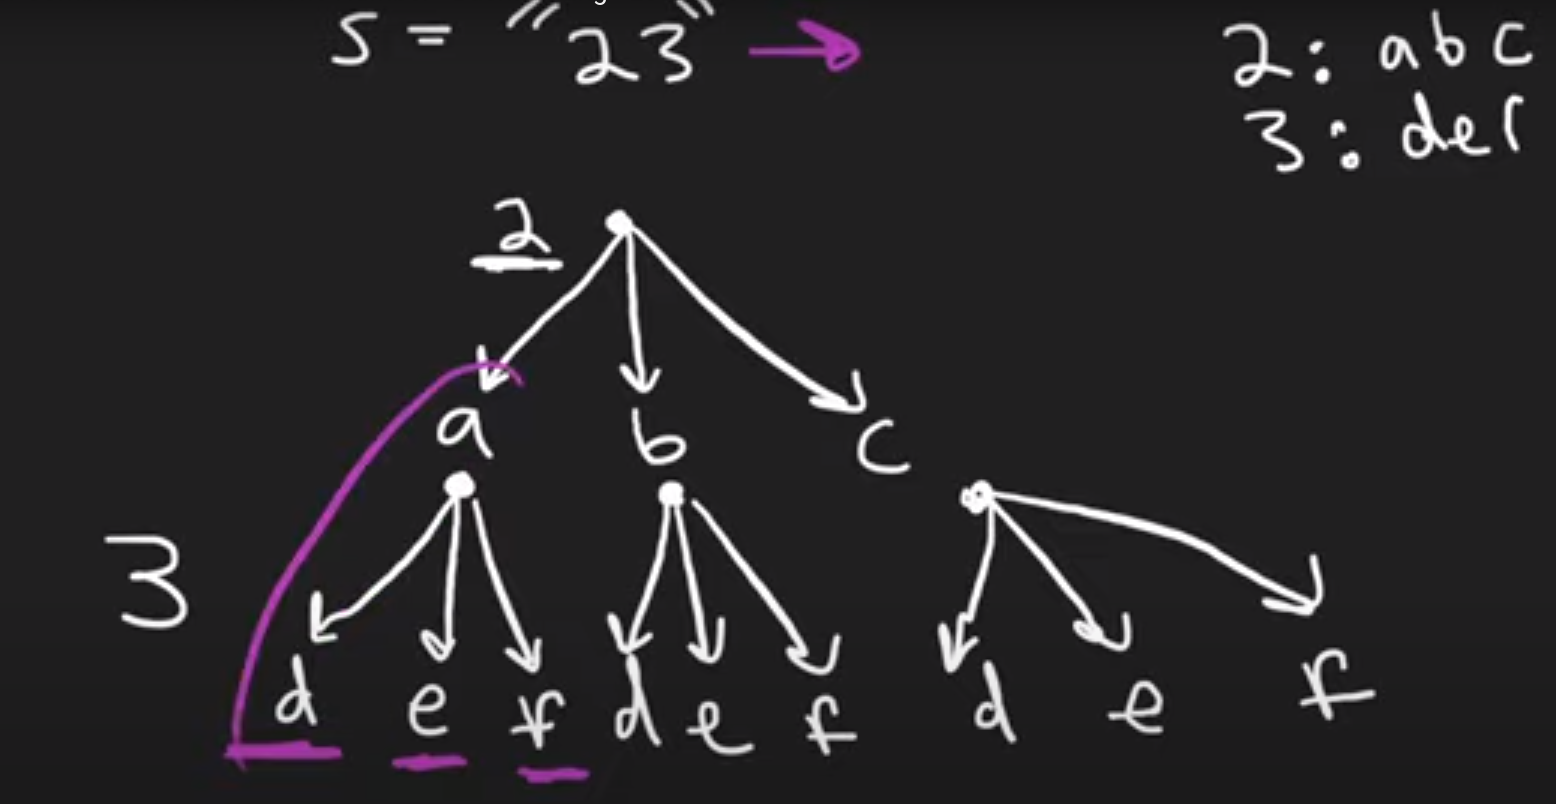 S = "23" →
2: abc
3: def
2
a b c
3
d e f d e f d e f